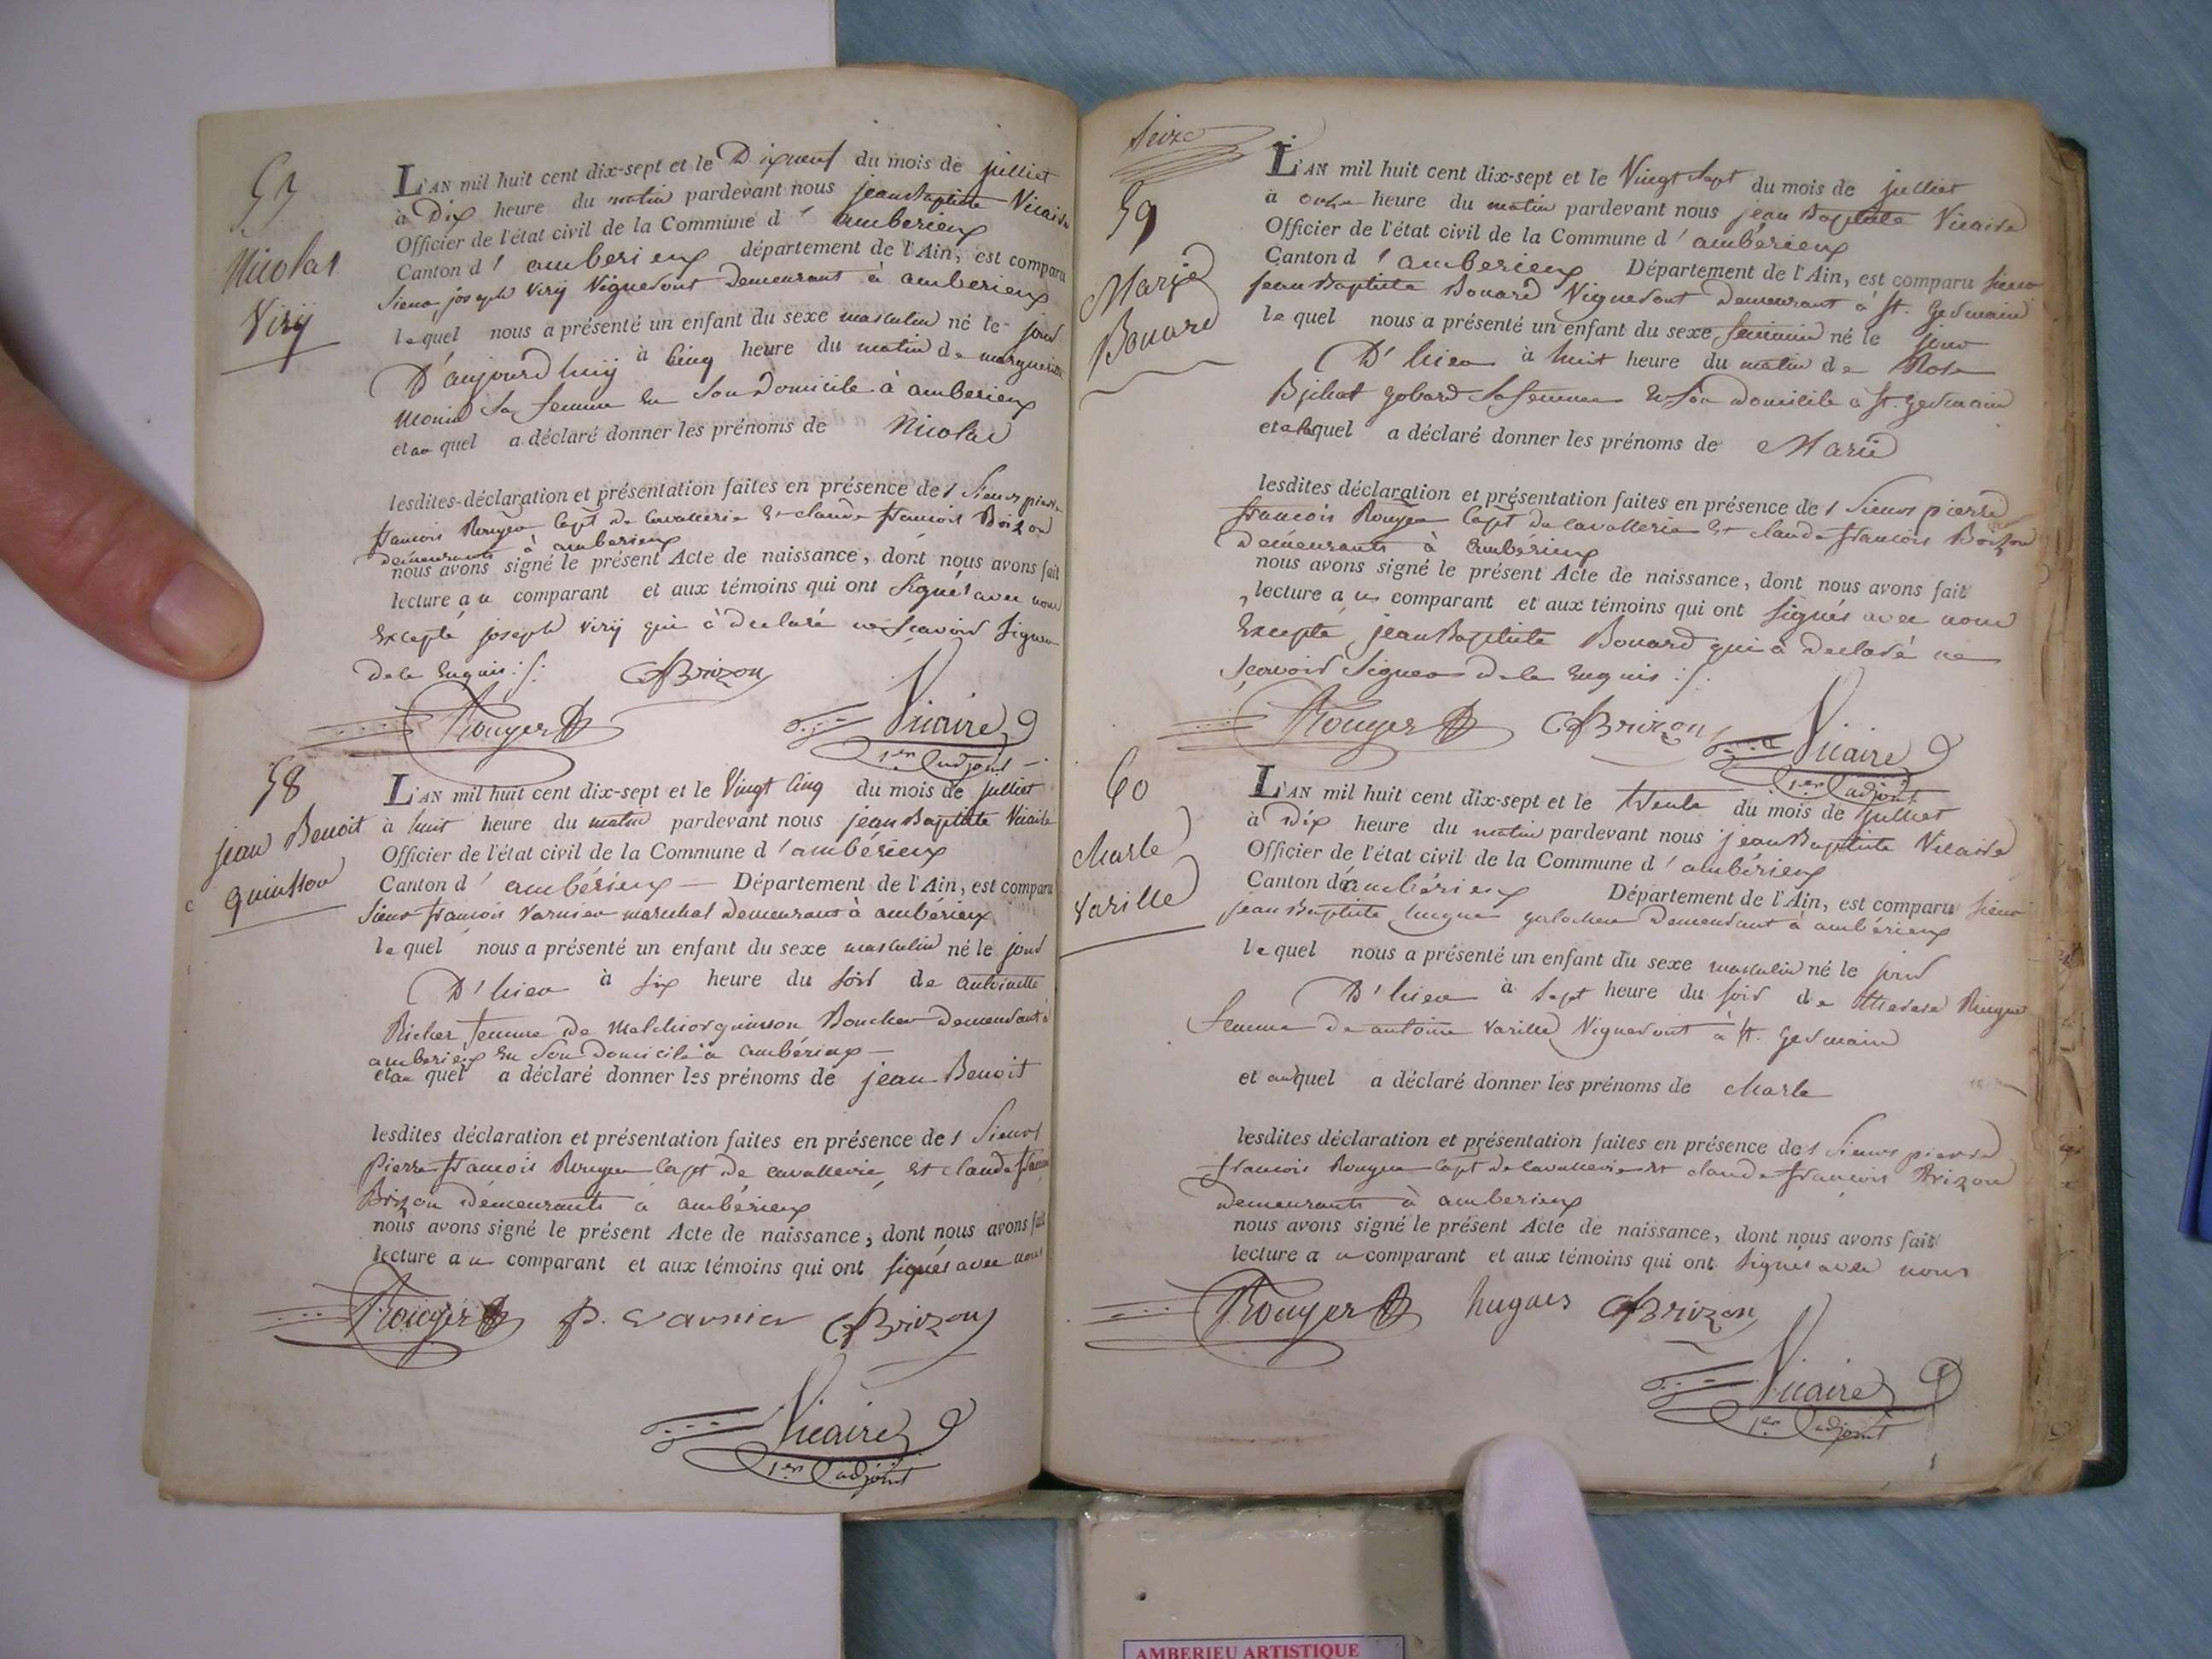 57
Nicolas
Viry
L'AN mil huit cent dix-sept et le Dixneuf du mois de julliet
à Dix heure du matin pardevant nous jean Baptiste Vicaire
Officier de l'état civil de la Commune d'amberieux
Canton d'amberieux département de l'Ain, est comparu
sieur joseph Viry Vigneront Demeurant à amberieux
lequel nous a présenté un enfant du sexe masculin né le jour
D'aujourd huy à Cinq heure du matin de marguerite
Monin sa femme en son Domicile à amberieux
et au quel a déclaré donner les prénoms de Nicolas
lesdites déclaration et présentation faites en présence des sieurs pierre
francois Rouyer Capt de Cavallerie et claude francois Brizon
demeurants à amberieux
nous avons signé le présent Acte de naissance, dont nous avons fait
lecture au comparant et aux témoins qui ont signés avec nous
Excepté joseph Viry qui à declaré ne scavoir signer
de le enquis
CfBrizon
Rouyer
Vicaire
1er adjoint
58
jean Benoit
quinsson
L'AN mil huit cent dix-sept et le Vingt Cinq du mois de julliet
à huit heure du matin pardevant nous jean Baptiste Vicaire
Officier de l'état civil de la Commune d'ambérieux
Canton d'ambérieux Département de l'Ain, est comparu
sieur francois Varnier marechal demeurant à ambérieux
lequel nous a présenté un enfant du sexe masculin né le jour
D'hier à six heure du soir de antoinette
Richer femme de Melchior quinson Boucher demeurant à
amberieux en son Domicile à ambérieux
et au quel a déclaré donner les prénoms de jean Benoit
lesdites déclaration et présentation faites en présence des sieurs
Pierre francois Rouyer Capt de cavallerie et claude francois
Brizon demeurants à ambérieux
nous avons signé le présent Acte de naissance, dont nous avons fait
lecture au comparant et aux témoins qui ont signés avec nous
Rouyer varnier CfBrizon
Vicaire
1er adjoint
seize
59
Marie
Bouard
L'AN mil huit cent dix-sept et le Vingt sept du mois de julliet
à onze heure du matin pardevant nous jean Baptiste Vicaire
Officier de l'état civil de la Commune d'ambérieux
Canton d'amberieux Département de l'Ain, est comparu sieur
jean Baptiste Bouard Vigneront Demeurant à St. Germain
lequel nous a présenté un enfant du sexe feminin né le jour
D'hier à huit heure du matin de Rose
gobard sa femme en son domicile à St. Germain
et a laquel a déclaré donner les prénoms de Marie
lesdites déclaration et présentation faites en présence des sieurs pierre
francois Rouyer Capt de cavallerie et claude francois Brizon
demeurants à ambérieux
nous avons signé le présent Acte de naissance, dont nous avons fait
lecture au comparant et aux témoins qui ont signés avec nous
Excepté jean Baptiste Bouard qui à declaré ne
scavoir signer de le enquis
Rouyer CfBrizon Vicaire
1er adjoint
60
Charle
Varille
L'AN mil huit cent dix-sept et le trente du mois de julliet
à Dix heure du matin pardevant nous jean Baptiste Vicaire
Officier de l'état civil de la Commune d'ambérieux
Canton d'ambérieux Département de l'Ain, est comparu sieur
jean Baptiste hugue galocher demeurant à ambérieux
lequel nous a présenté un enfant du sexe masculin né le jour
D'hier à sept heure du soir de
femme de antoine Varille Vigneront à St. Germain
et auquel a déclaré donner les prénoms de Charle
lesdites déclaration et présentation faites en présence des sieurs pierre
francois Rouyer Capt de Cavallerie et claude francois Brizon
demeurants à amberieux
nous avons signé le présent Acte de naissance, dont nous avons fait
lecture au comparant et aux témoins qui ont signés avec nous
Rouyer hugues CfBrizon
Vicaire
1er adjoint
AMBERIEU ARTISTIQUE